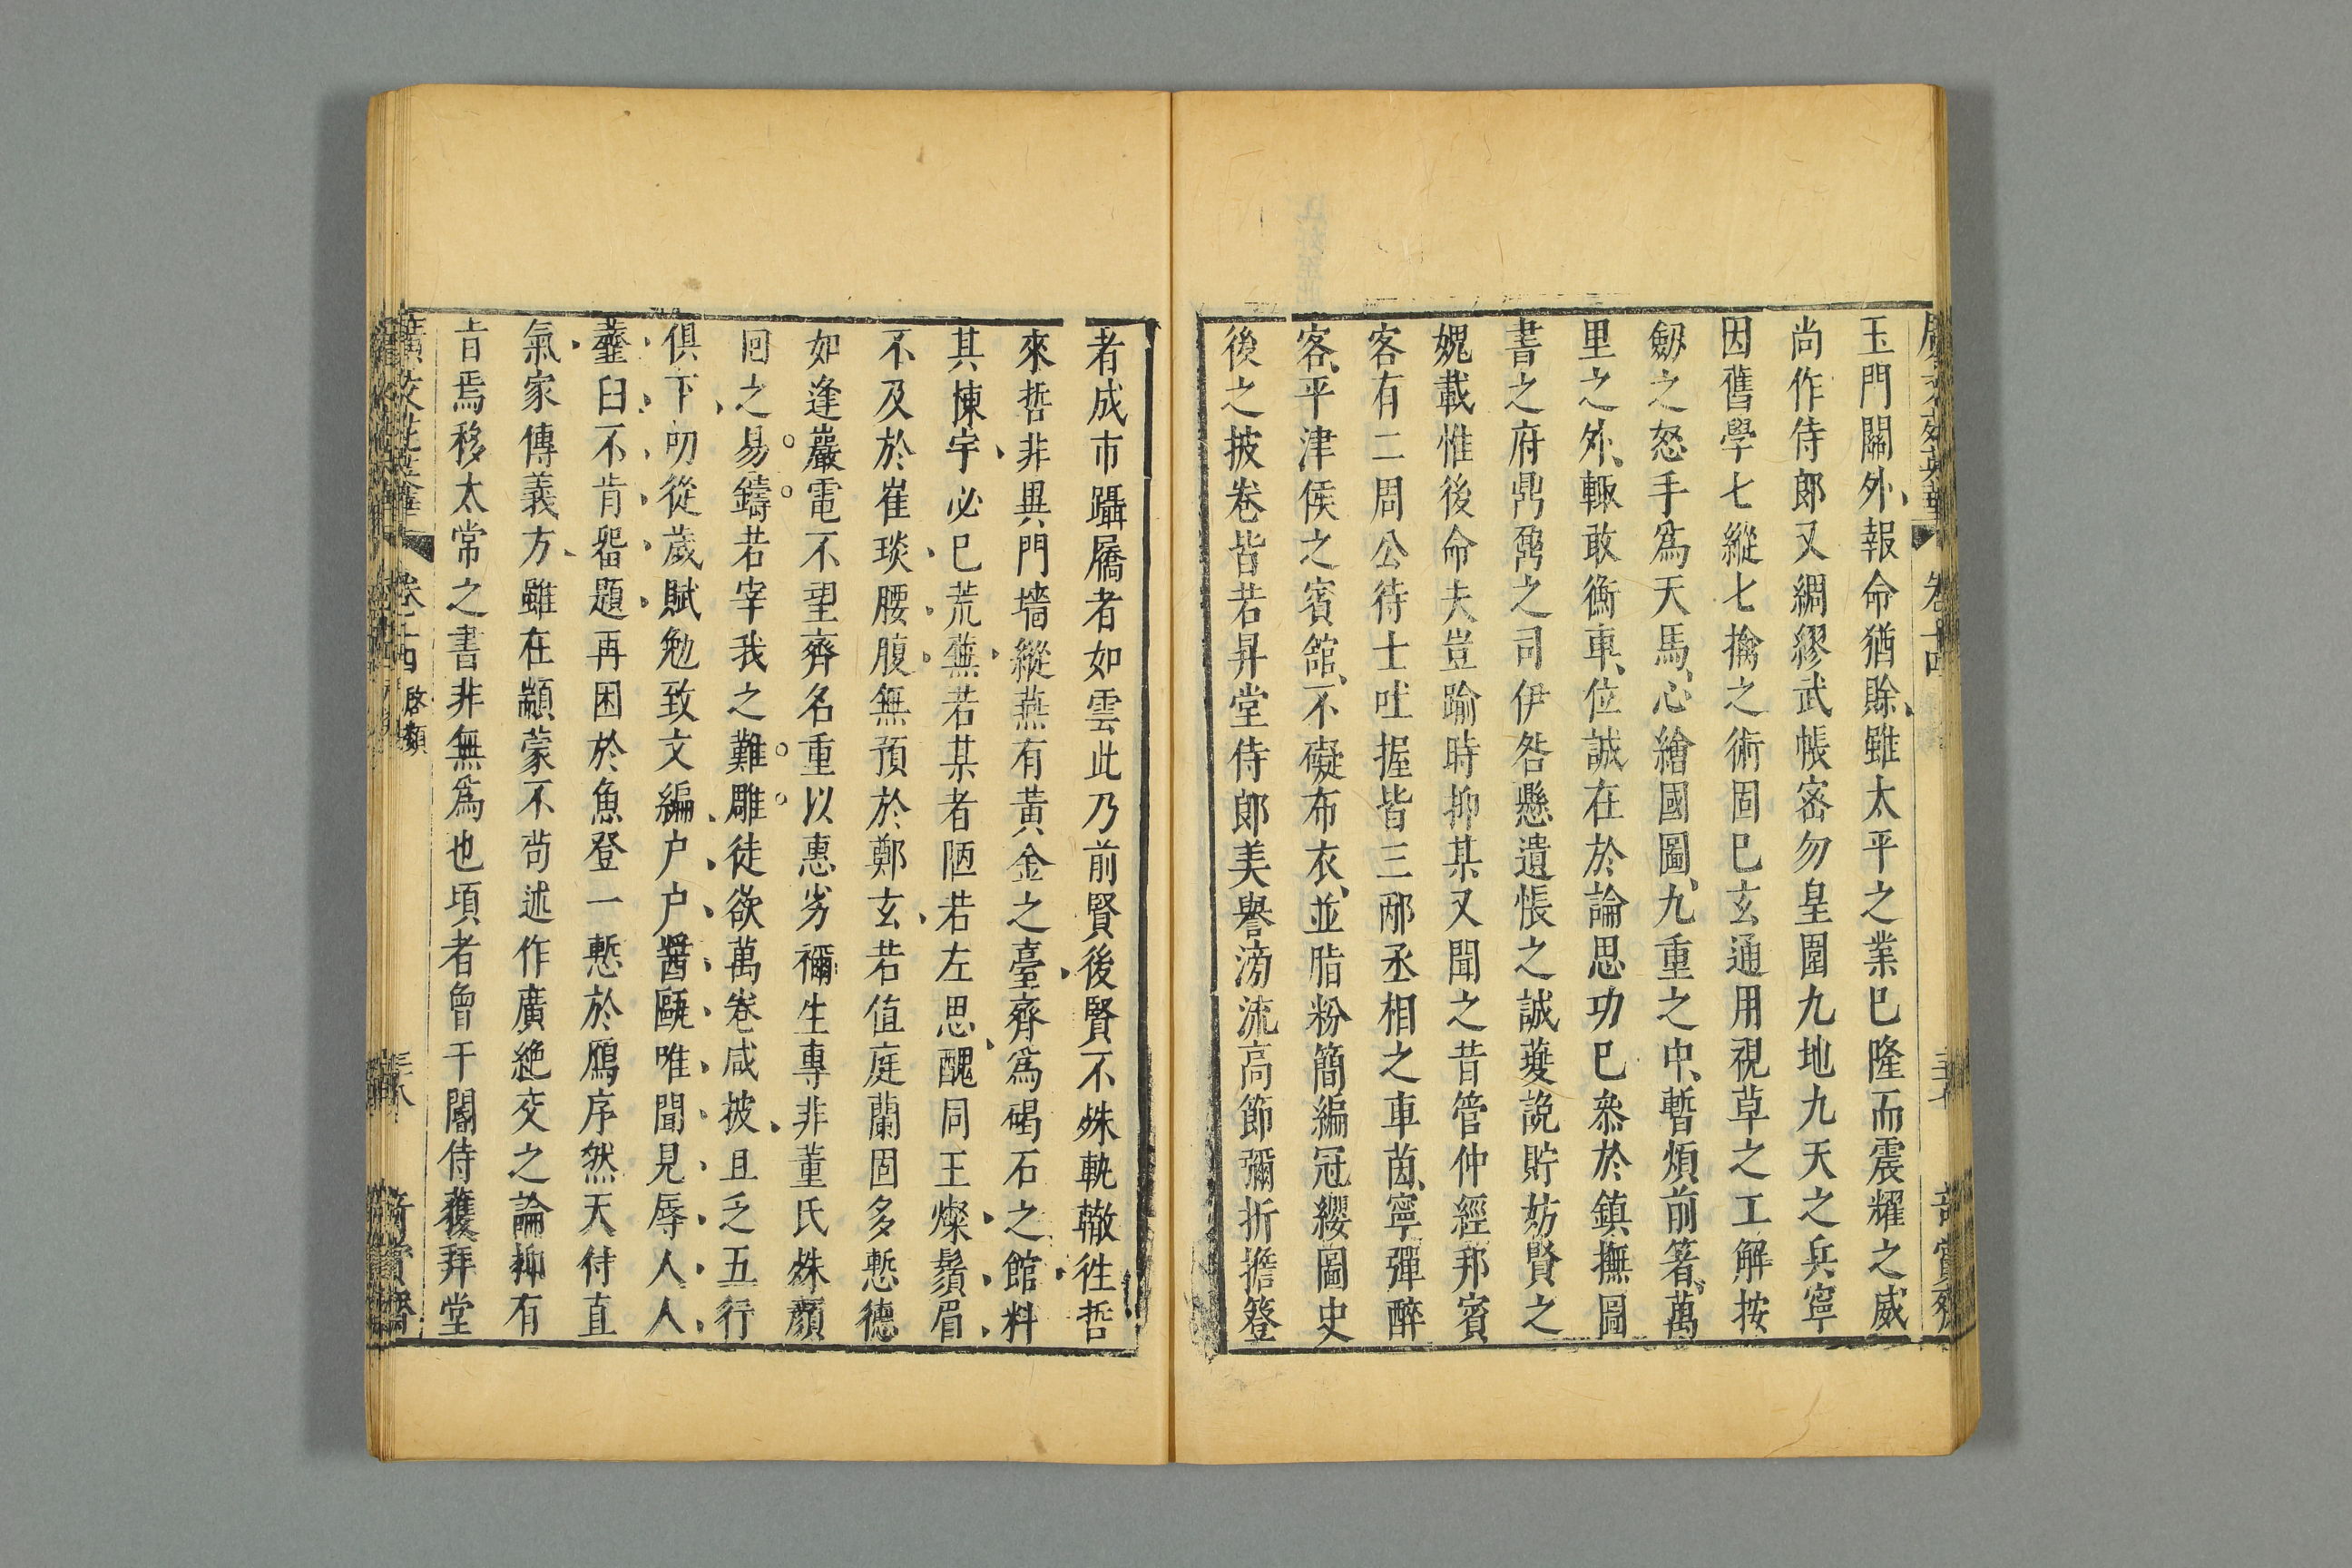 玉門關外、報命猶賒、雖太平之業已隆而震耀之威
尚作侍郎又綢繆武帳密勿皇圍九地九天之兵寧
因舊學七縱七擒之術固已玄通用視草之工解按
劒之怒手爲天馬、心繪國圖、九重之中、暫煩前箸、萬
里之外、輙敢衝車、位誠在於論思功已叅於鎮撫圖
書之府鼎鼐之司伊咎懸遺悵之誠蘷說貯妨賢之
媿載惟後命夫豈踰時抑某又聞之昔管仲經邦賓
客有二周公待士吐握皆三邴丞相之車茵、寧彈醉
客、平津侯之賓舘、不礙布衣、並脂粉簡編冠纓圖史
後之披卷皆若昇堂侍郎美譽滂流高節彌折擔簦
者成市躡屩者如雲此乃前賢後賢不殊軌轍徃哲
來哲非異門墻縱燕有黃金之臺齊爲碣石之館料
其棟宇必已荒蕪若某者陋若左思醜同王燦鬚眉
不及於崔琰腰腹無預於鄭玄若值庭蘭固多慙德
如逢巖電不望齊名重以惠劣禰生專非董氏殊顏
囘之易鑄若宰我之難雕徒欲萬卷咸披且乏五行
俱下叨從歲賦勉致文編户户醬甌唯聞見辱人人
虀臼不肯畱題再困於魚登一慙於鴈序然天付直
氣家傳義方雖在顓蒙不茍述作廣絶交之論抑有
旨焉移太常之書非無爲也頃者曾干閽侍獲拜堂
廣文苑英華 卷十四 啓類 三十八 奇賞齋